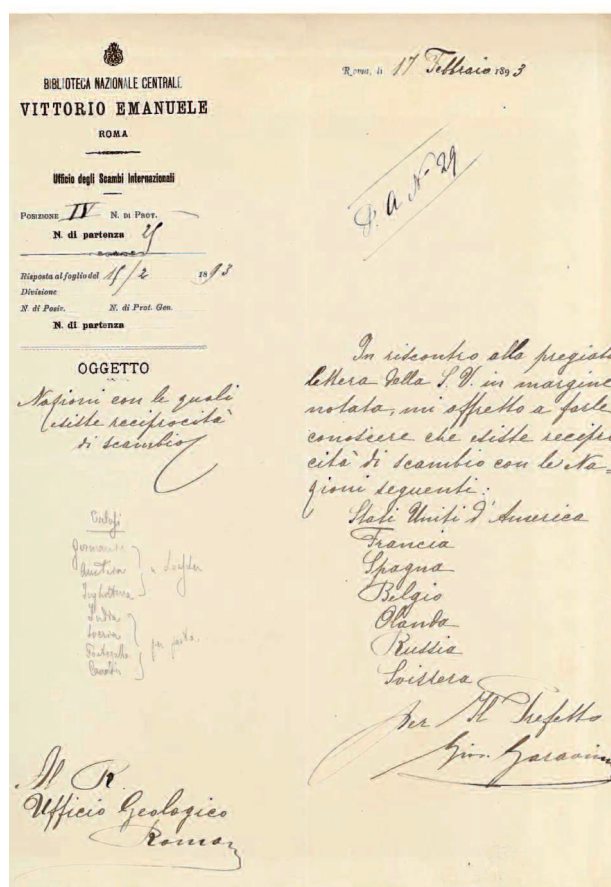 BIBLIOTECA NAZIONALE CENTRALE
VITTORIO EMANUELE
ROMA
Ufficio degli Scambi Internazionali
POSIZIONE IV N. DI PROT.
N. di partenza 25
Risposta al foglio del 15/2 1893
Divisione
N. di Posiz. N. di Prot. Gen.
N. di partenza
OGGETTO
Nazioni con le quali
esiste reciprocità
di scambio
Germania
Austria
Inghilterra
Svezia
Portogallo
per posta
Al R.
Ufficio Geologico
Roma
Roma, li 17 Febbraio 1893
P. A N. 29
In riscontro alla pregiata
lettera della S. V. in margine
notata, mi affretto a farle
conoscere che esiste recipro
cità di scambio con le Na=
zioni seguenti:
Stati Uniti d'America
Francia
Spagna
Belgio
Olanda
Russia
Svissera
per Il Prefetto